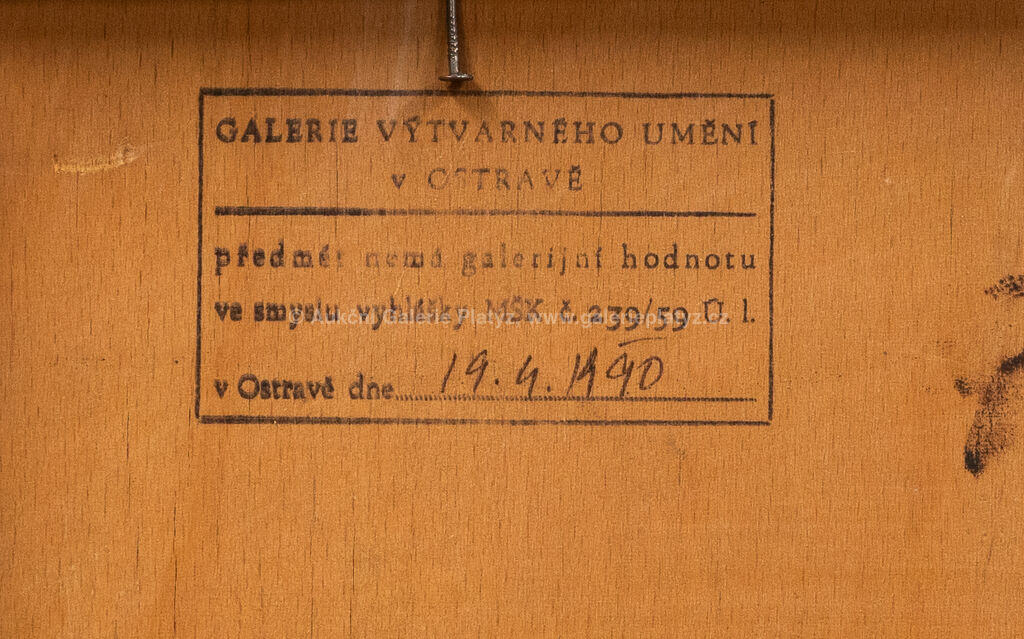 GALERIE VÝTVARNÉHO UMĚNÍ
v OSTRAVĚ
předmět nemá galerijní hodnotu
ve smyslu vyhlášky MŠK č. 259/59 Ú. l.
© Aukční Galerie Platýz, www.galerieplatyz.cz
v Ostravě dne 19. 4. 1990